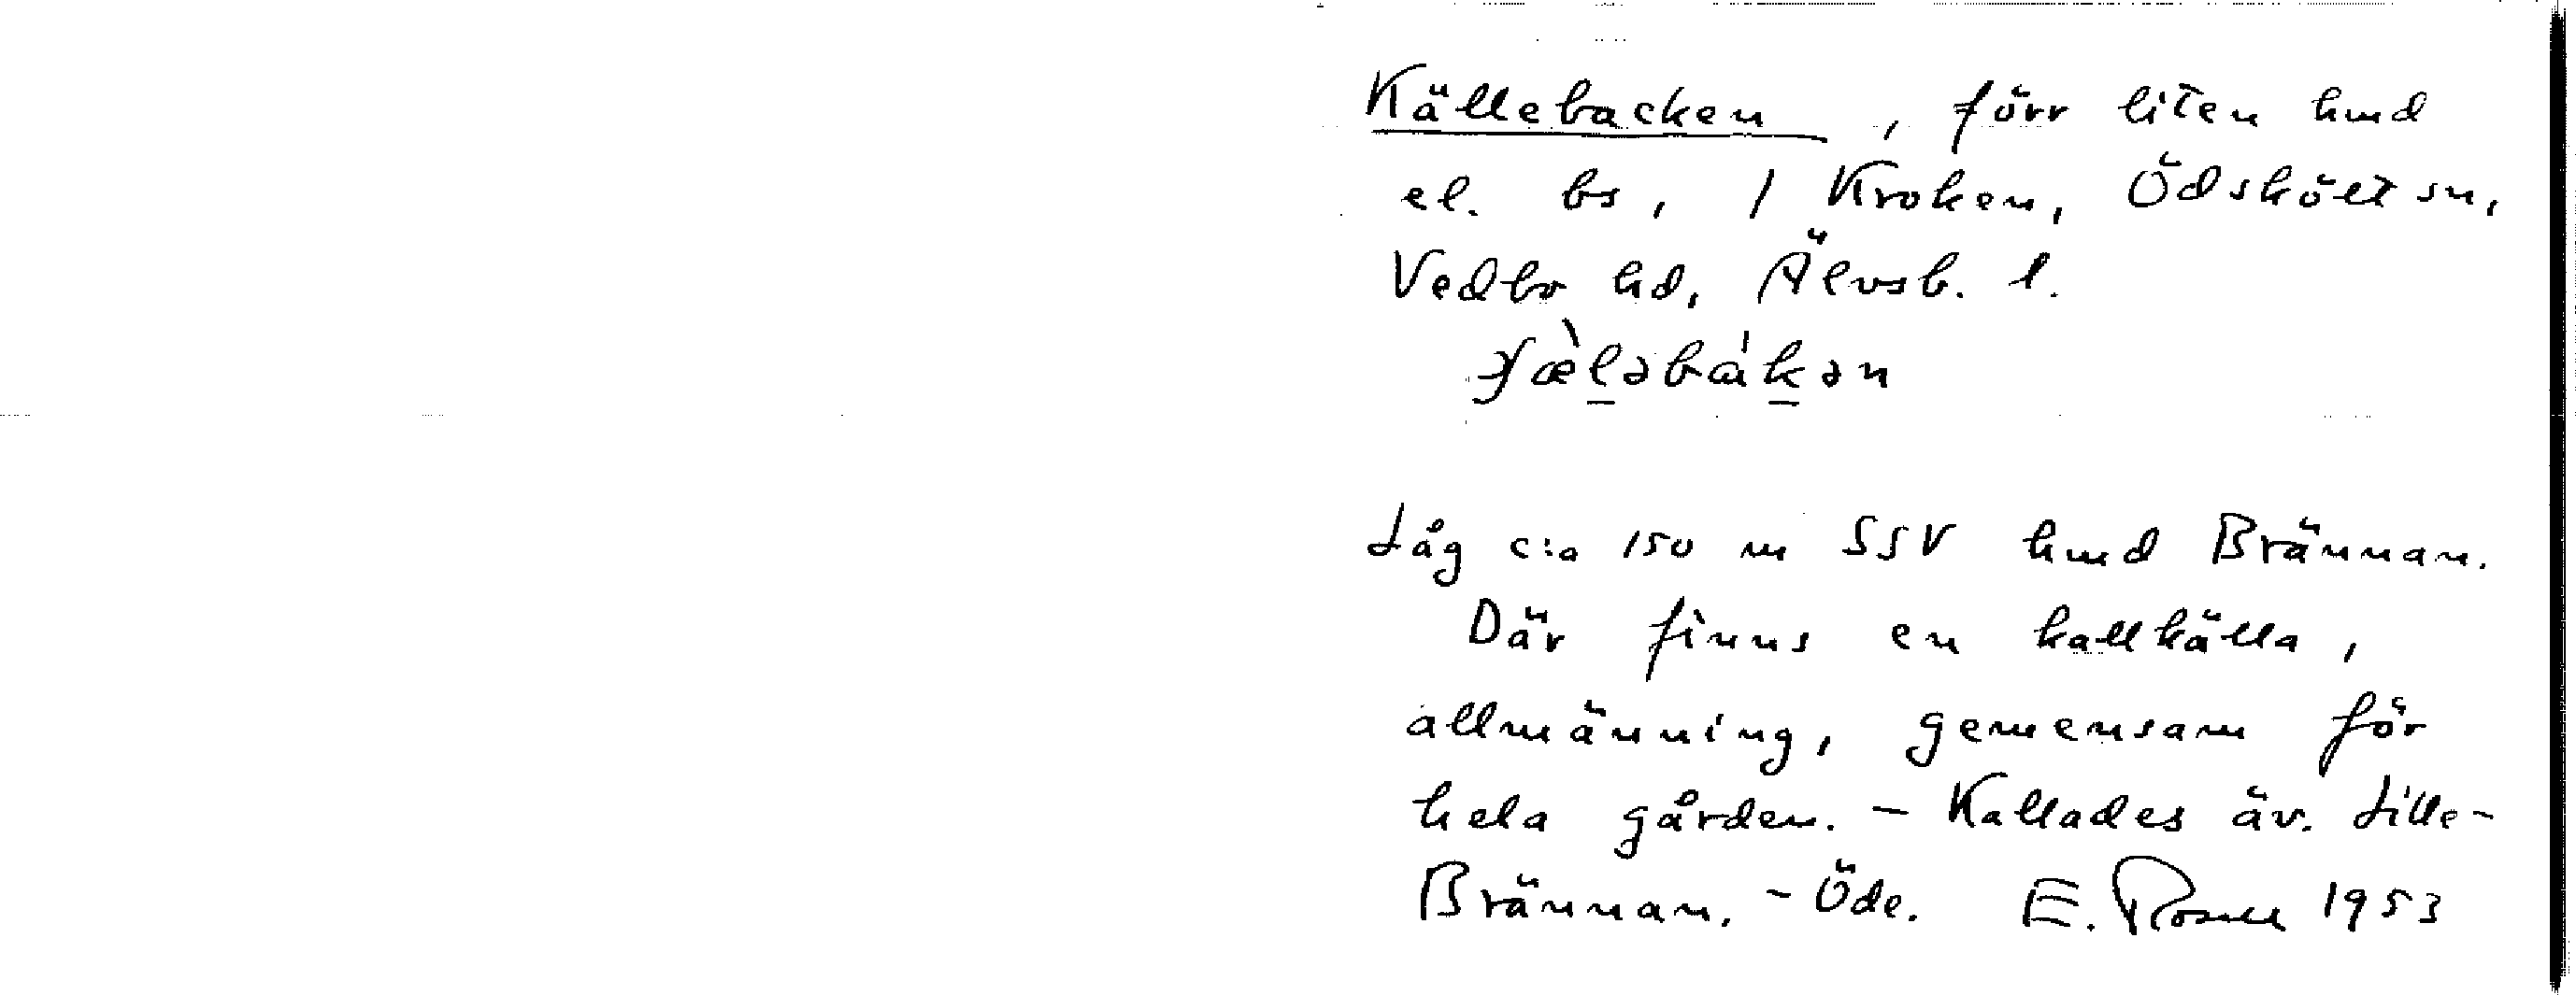 Källebacken, förr liten hmd
el. bs, 1 Kroken, Ödskölt sn,
Vedbo hd, Älvsb. l.
Låg c:a 150 m SSV hmd Brännan.
Där finns en kallkälla,
allmänning, gemensam för
hela gården. – Kallades äv. Lille-
Brännan. – Öde. E. Rosell 1953